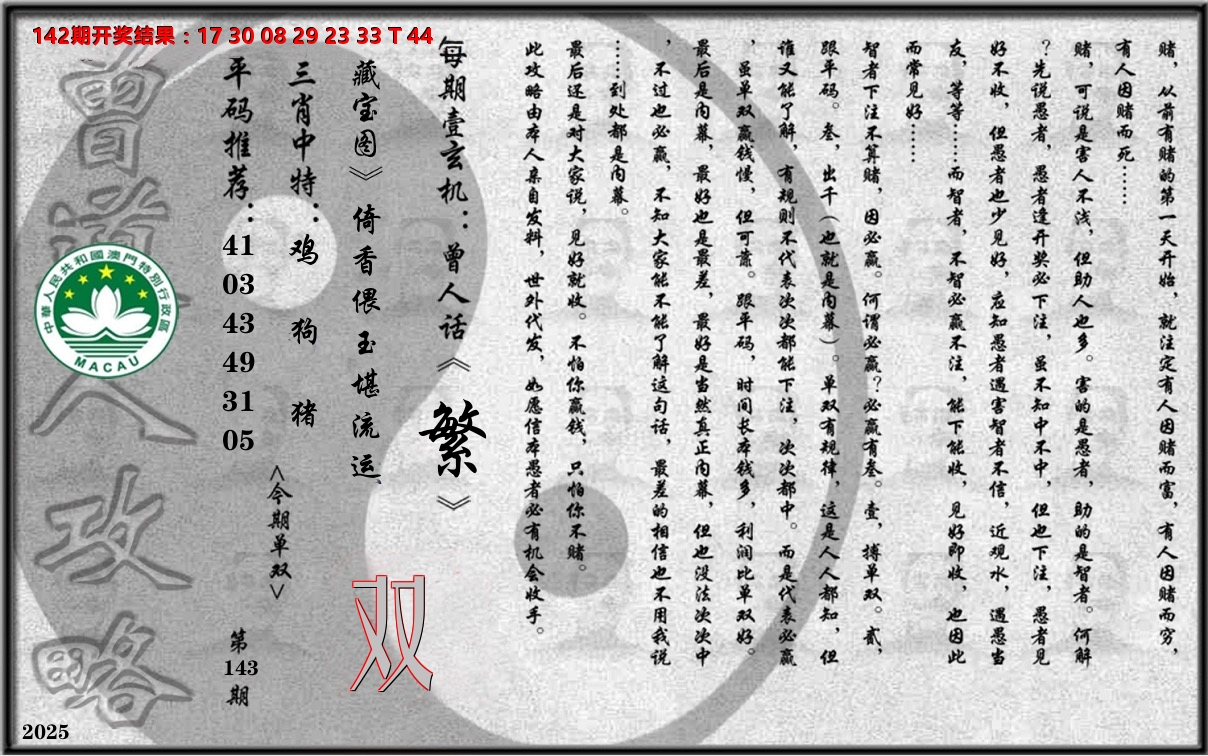 142期开奖结果：17 30 08 29 23 33 T 44
赌，从前有赌的第一天开始，就注定有人因赌而富，有人因赌而穷，
有人因赌而死……
赌，可说是害人不浅，但助人也多。害的是愚者，助的是智者。何解
？先说愚者，愚者逢开奖必下注，虽不知中不中，但也下注，愚者见
好不收，但愚者也少见好，应知愚者遇害智者不信，近观水，遇愚当
友，等等……而智者，不智必赢不注，能下能收，见好即收，也因此
而常见好……
智者下注不算赌，因必赢。何谓必赢？必赢有叁。壹，搏单双。贰，
跟平码。叁，出千（也就是内幕）。单双有规律，这是人人都知，但
谁又能了解，有规则不代表次次都能下注，次次都中。而是代表必赢
，虽单双赢钱慢，但可靠。跟平码，时间长本钱多，利润比单双好。
最后是内幕，最好也是最差，最好是当然真正内幕，但也没法次次中
，不过也必赢，不知大家能不能了解这句话，最差的相信也不用我说
……到处都是内幕。
最后还是对大家说，见好就收。不怕你赢钱，只怕你不赌。
此攻略由本人亲自发料，世外代发，如愿信本愚者必有机会收手。
每期壹玄机：曾人话《繁》
藏宝图》倚香偎玉堪流运
三肖中特：鸡 狗 猪
<今期单双>
双
平码推荐：41 03 43 49 31 05
第143期
曾道人攻略
中華人民共和國澳門特別行政區
MACAU
2025